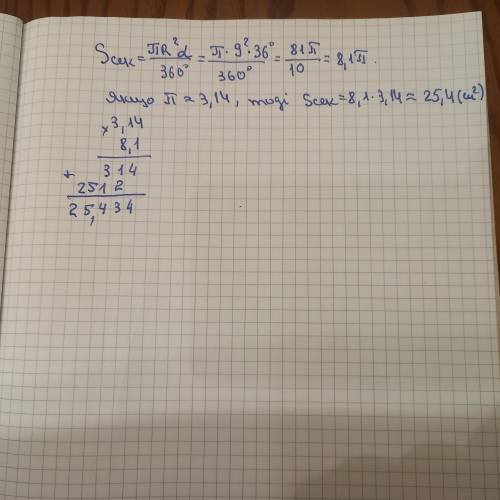 Sсек = πR²α/360° = π·9²·36°/360° = 81π/10 = 8,1π.
Якщо π ≈ 3,14, тоді Sсек = 8,1·3,14 ≈ 25,4 (см²)
× 3,14
8,1
314
+ 2512
25,434